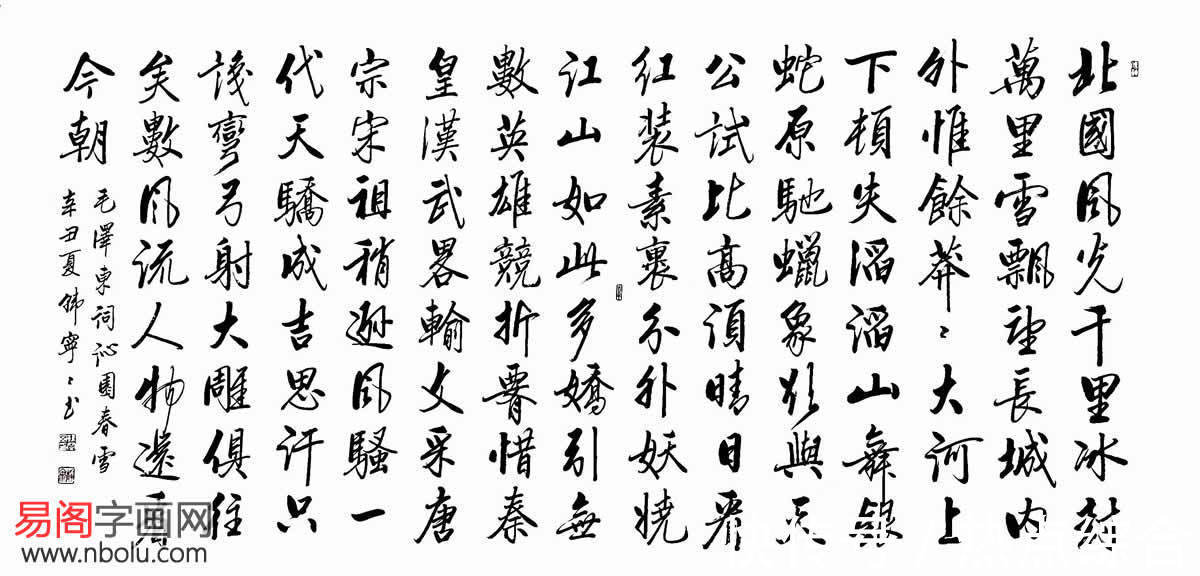 北國風光千里冰封
萬里雪飄望長城内
外惟餘莽〻大河上
下頓失滔滔山舞銀
蛇原馳蠟象欲與天
公試比高須晴日看
紅装素裹分外妖嬈
江山如此多嬌引無
數英雄競折腰惜秦
皇漢武畧輸文采唐
宗宋祖稍遜風騷一
代天驕成吉思汗只
識彎弓射大雕俱往
矣數風流人物還看
今朝
毛澤東詞沁園春雪
辛丑夏韩寧〻書
易阁字画网
www.nbolu.com
快传号/热点综合